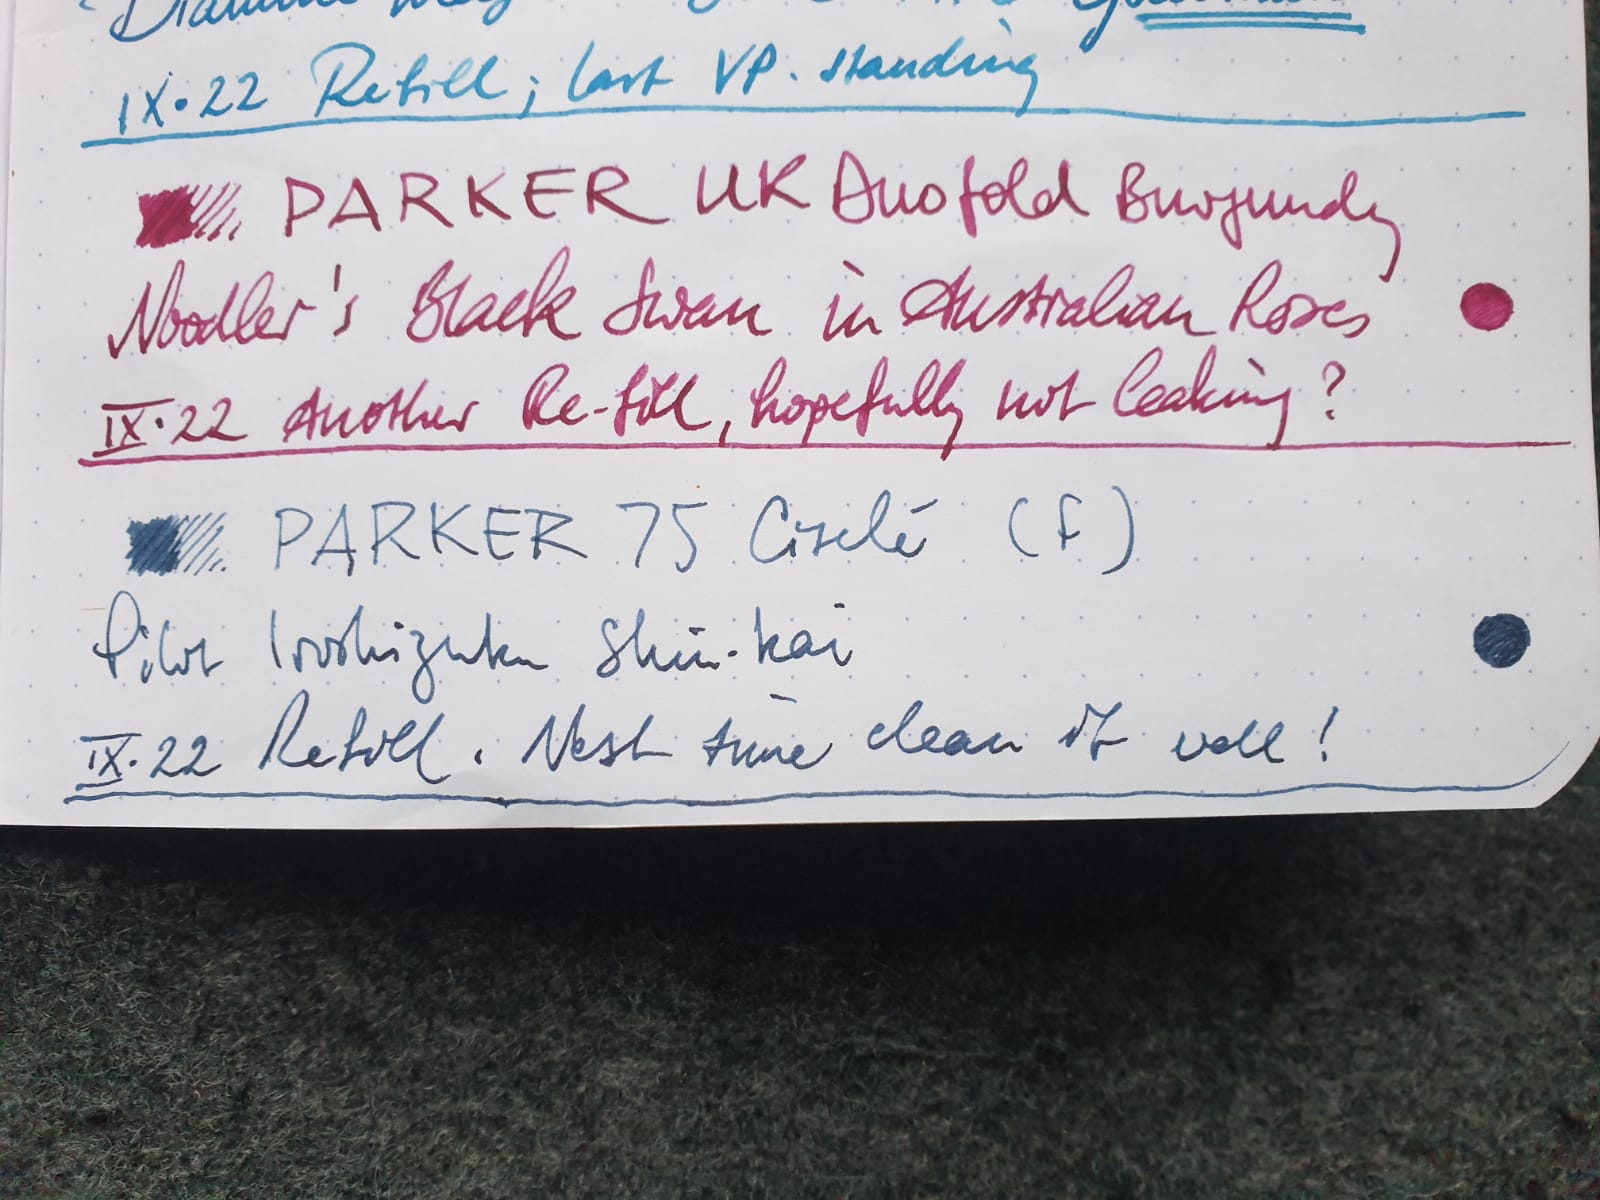 Diamine
IX·22 Refill; last VP. standing
PARKER UK Duofold Burgundy
Noodler's Black Swan in Australian Roses
IX·22 Another Re-fill, hopefully not leaking?
PARKER 75 Ciselé (F)
Pilot Iroshizuku Shin-kai
IX·22 Refill. Next time clean it well!